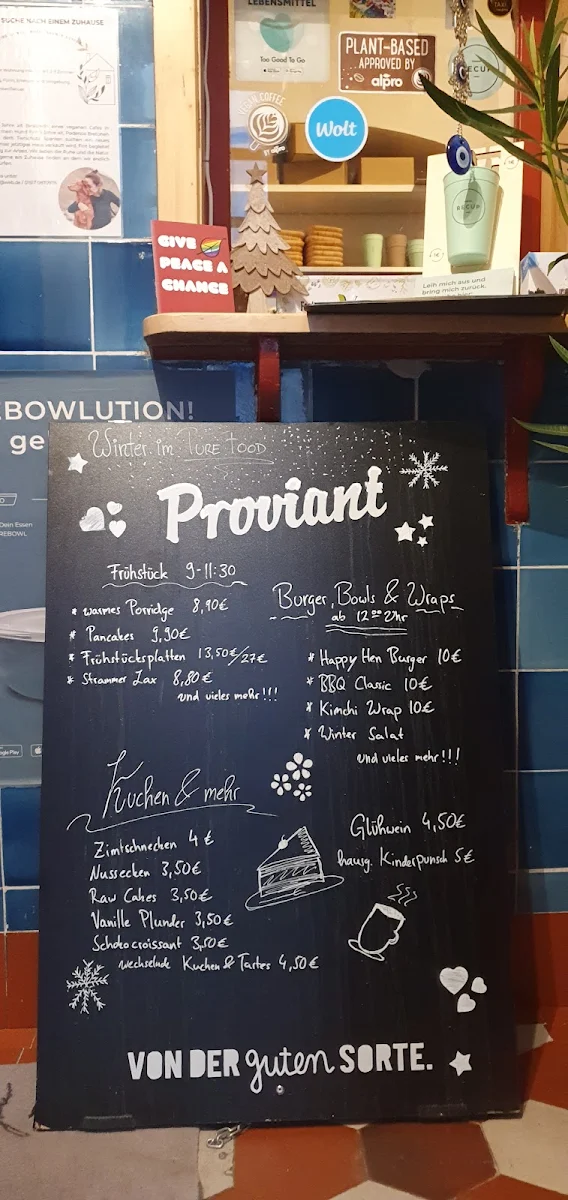 SUCHE NACH EINEM ZUHAUSE
LEBENSMITTEL
Too Good To Go
PLANT-BASED
APPROVED BY
alpro
Wolt
RECUP
GIVE
PEACE A
CHANCE
Leih mich aus und
bring mich zurück.
EBOWLUTION!
ge
Dein Essen
REBOWL
Winter im PURE FOOD
Proviant
Frühstück 9-11:30
* warmes Porridge 8,90€
* Pancakes 9,90€
* Frühstücksplatten 13,50€/27€
* Strammer Lax 8,80€
und vieles mehr!!!
Burger, Bowls & Wraps
ab 12 00 Uhr
* Happy Hen Burger 10€
* BBQ Classic 10€
* Kimchi Wrap 10€
* Winter Salat
und vieles mehr!!!
Kuchen & mehr
Zimtschnecken 4 €
Nussecken 3,50€
Raw Cakes 3,50€
Vanille Plunder 3,50€
Schokocroissant 3,50€
wechselnde Kuchen & Tartes 4,50€
Glühwein 4,50€
hausg. Kinderpunsch 5€
VON DER guten SORTE.